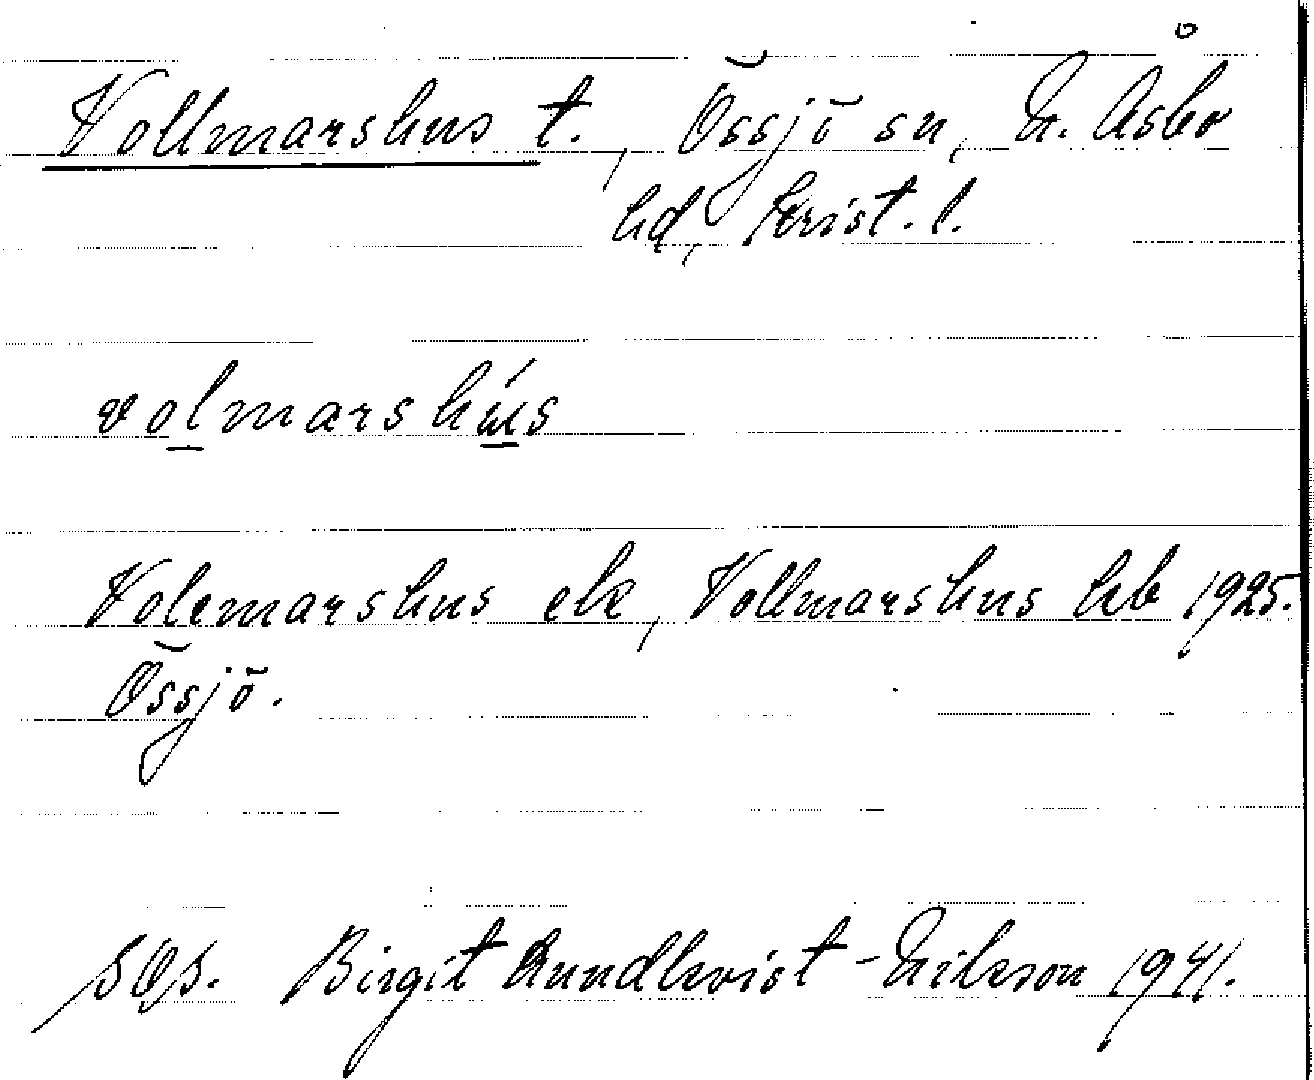 Vollmarshus t., Össjö sn, N. Åsbo
hd, Krist. l.
volmarshús
Volemarshus ek, Vollmarshus kb 1925.
Össjö.
SOS. Birgit Rundkvist-Nilsson 1941.